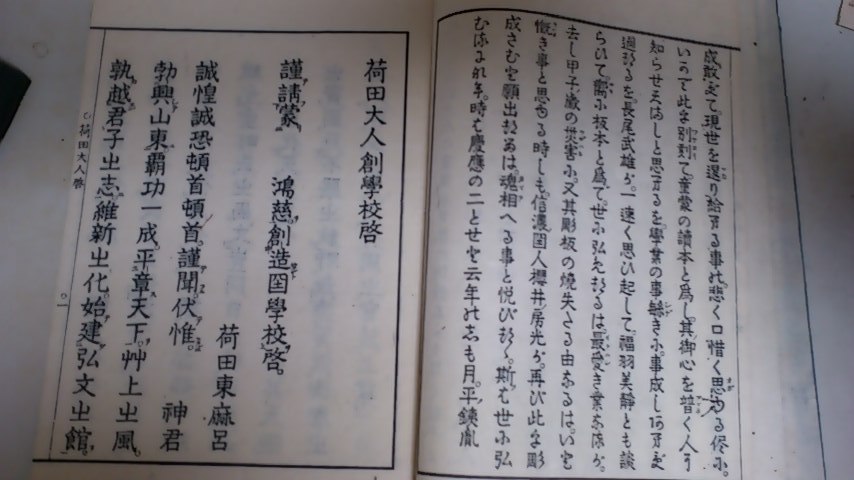 現世を避り給ふる事の。悲く口惜く思ゆる侭に。
いかで此を別刻て。童蒙の讀本と爲し。其御心を普く人に
知らせまほしと思へるを。學業の事繇きに。事成し
過ぬるを。長尾武雄が。一速く思ひ起して。福羽美静とも議
らひて。板本と爲て。世に弘めたるは。最愛き業なりしが。
去し甲子歳の災害に。又其彫板の焼失たる由なるは。いと
慨き事と思へる時しも。信濃國人櫻井房光が。再び此を彫
成さむと願出たるは。魂相へる事と悦びたり。斯て世に弘
時は慶應の二とせと云年のしも月。平銕胤
荷田大人創學校啓
謹請蒙 鴻慈創造國學校啓。
荷田東麻呂
誠惶誠恐頓首頓首。謹聞伏惟。 神君
勃興山東。霸功一成。平章天下。艸上㞢風。
孰越君子㞢志。維新㞢化。始建弘文㞢館。
荷田大人啓